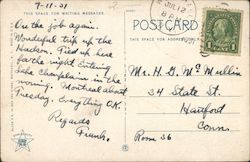 7-11-31
THIS SPACE FOR WRITING MESSAGES
POST CARD
JUL 12
On the job again.
Wonderful trip up the
Hudson. Tied up here
for the night. Entering
Lake Champlain in the
morning. Montreal about
Tuesday. Everything O.K.
Regards
Frank.
Mr. H. G. Mc Mullin
34 State St.
Hartford
Conn.
Room 36